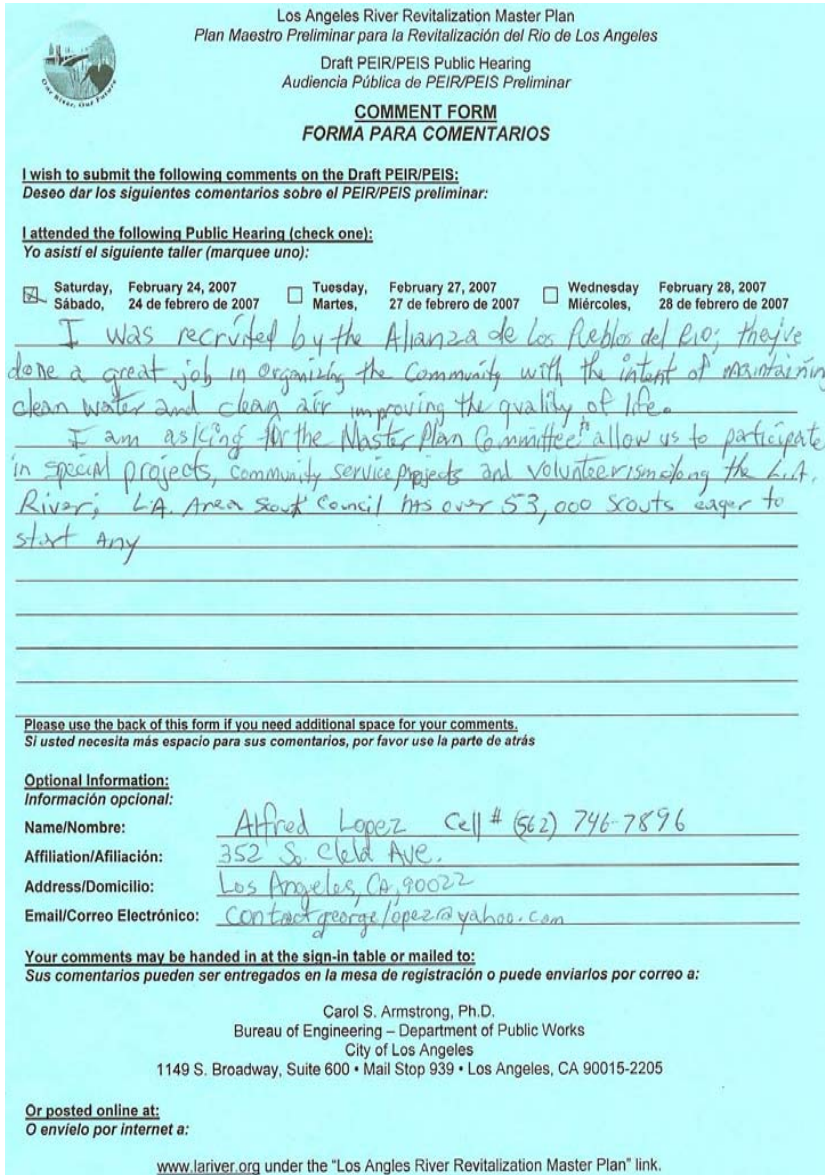 One River, Our Future
Los Angeles River Revitalization Master Plan
Plan Maestro Preliminar para la Revitalización del Rio de Los Angeles
Draft PEIR/PEIS Public Hearing
Audiencia Pública de PEIR/PEIS Preliminar
COMMENT FORM
FORMA PARA COMENTARIOS
I wish to submit the following comments on the Draft PEIR/PEIS:
Deseo dar los siguientes comentarios sobre el PEIR/PEIS preliminar:
I attended the following Public Hearing (check one):
Yo asistí el siguiente taller (marquee uno):
Saturday, February 24, 2007 Tuesday, February 27, 2007 Wednesday February 28, 2007
Sábado, 24 de febrero de 2007 Martes, 27 de febrero de 2007 Miércoles, 28 de febrero de 2007
I was recruited by the Alianza de Los Peblos del Rio; they've
done a great job in organizing the Community with the intent of maintaining
clean water and clean air improving the quality of life.
I am asking for the Master Plan Committee to allow us to participate
in special projects, community service projects and volunteerism along the L.A.
River; L.A. Area Scout Council has over 53,000 Scouts eager to
start any
Please use the back of this form if you need additional space for your comments.
Si usted necesita más espacio para sus comentarios, por favor use la parte de atrás
Optional Information:
Información opcional:
Name/Nombre: Alfred Lopez Cell # (562) 746-7896
Affiliation/Afiliación: 352 So. Clela Ave.
Address/Domicilio: Los Angeles, CA, 90022
Email/Correo Electrónico: Contactgeorgelopez@yahoo.com
Your comments may be handed in at the sign-in table or mailed to:
Sus comentarios pueden ser entregados en la mesa de registración o puede enviarlos por correo a:
Carol S. Armstrong, Ph.D.
Bureau of Engineering – Department of Public Works
City of Los Angeles
1149 S. Broadway, Suite 600 • Mail Stop 939 • Los Angeles, CA 90015-2205
Or posted online at:
O envíelo por internet a:
www.lariver.org under the "Los Angles River Revitalization Master Plan" link.